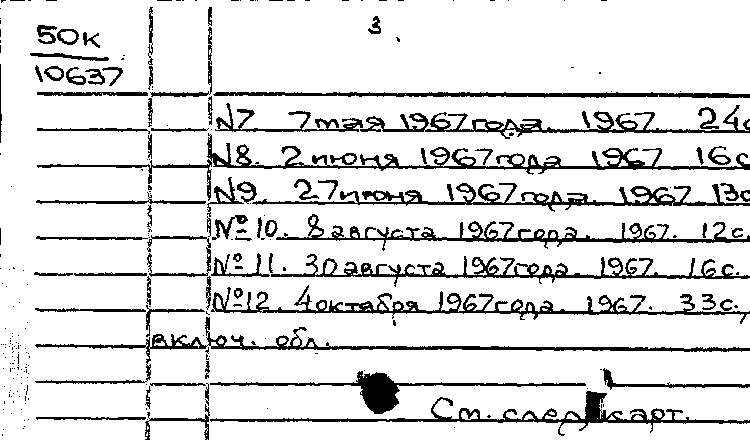 3
50к
10637
№7 7 мая 1967 года. 1967 24с
№8. 2 июня 1967 года 1967 16с
№9. 27 июня 1967 года. 1967 13с
№10. 8 августа 1967 года. 1967. 12с.
№11. 30 августа 1967 года. 1967. 16с.
№12. 4 октября 1967 года. 1967. 33с.,
включ. обл.
См. след. карт.